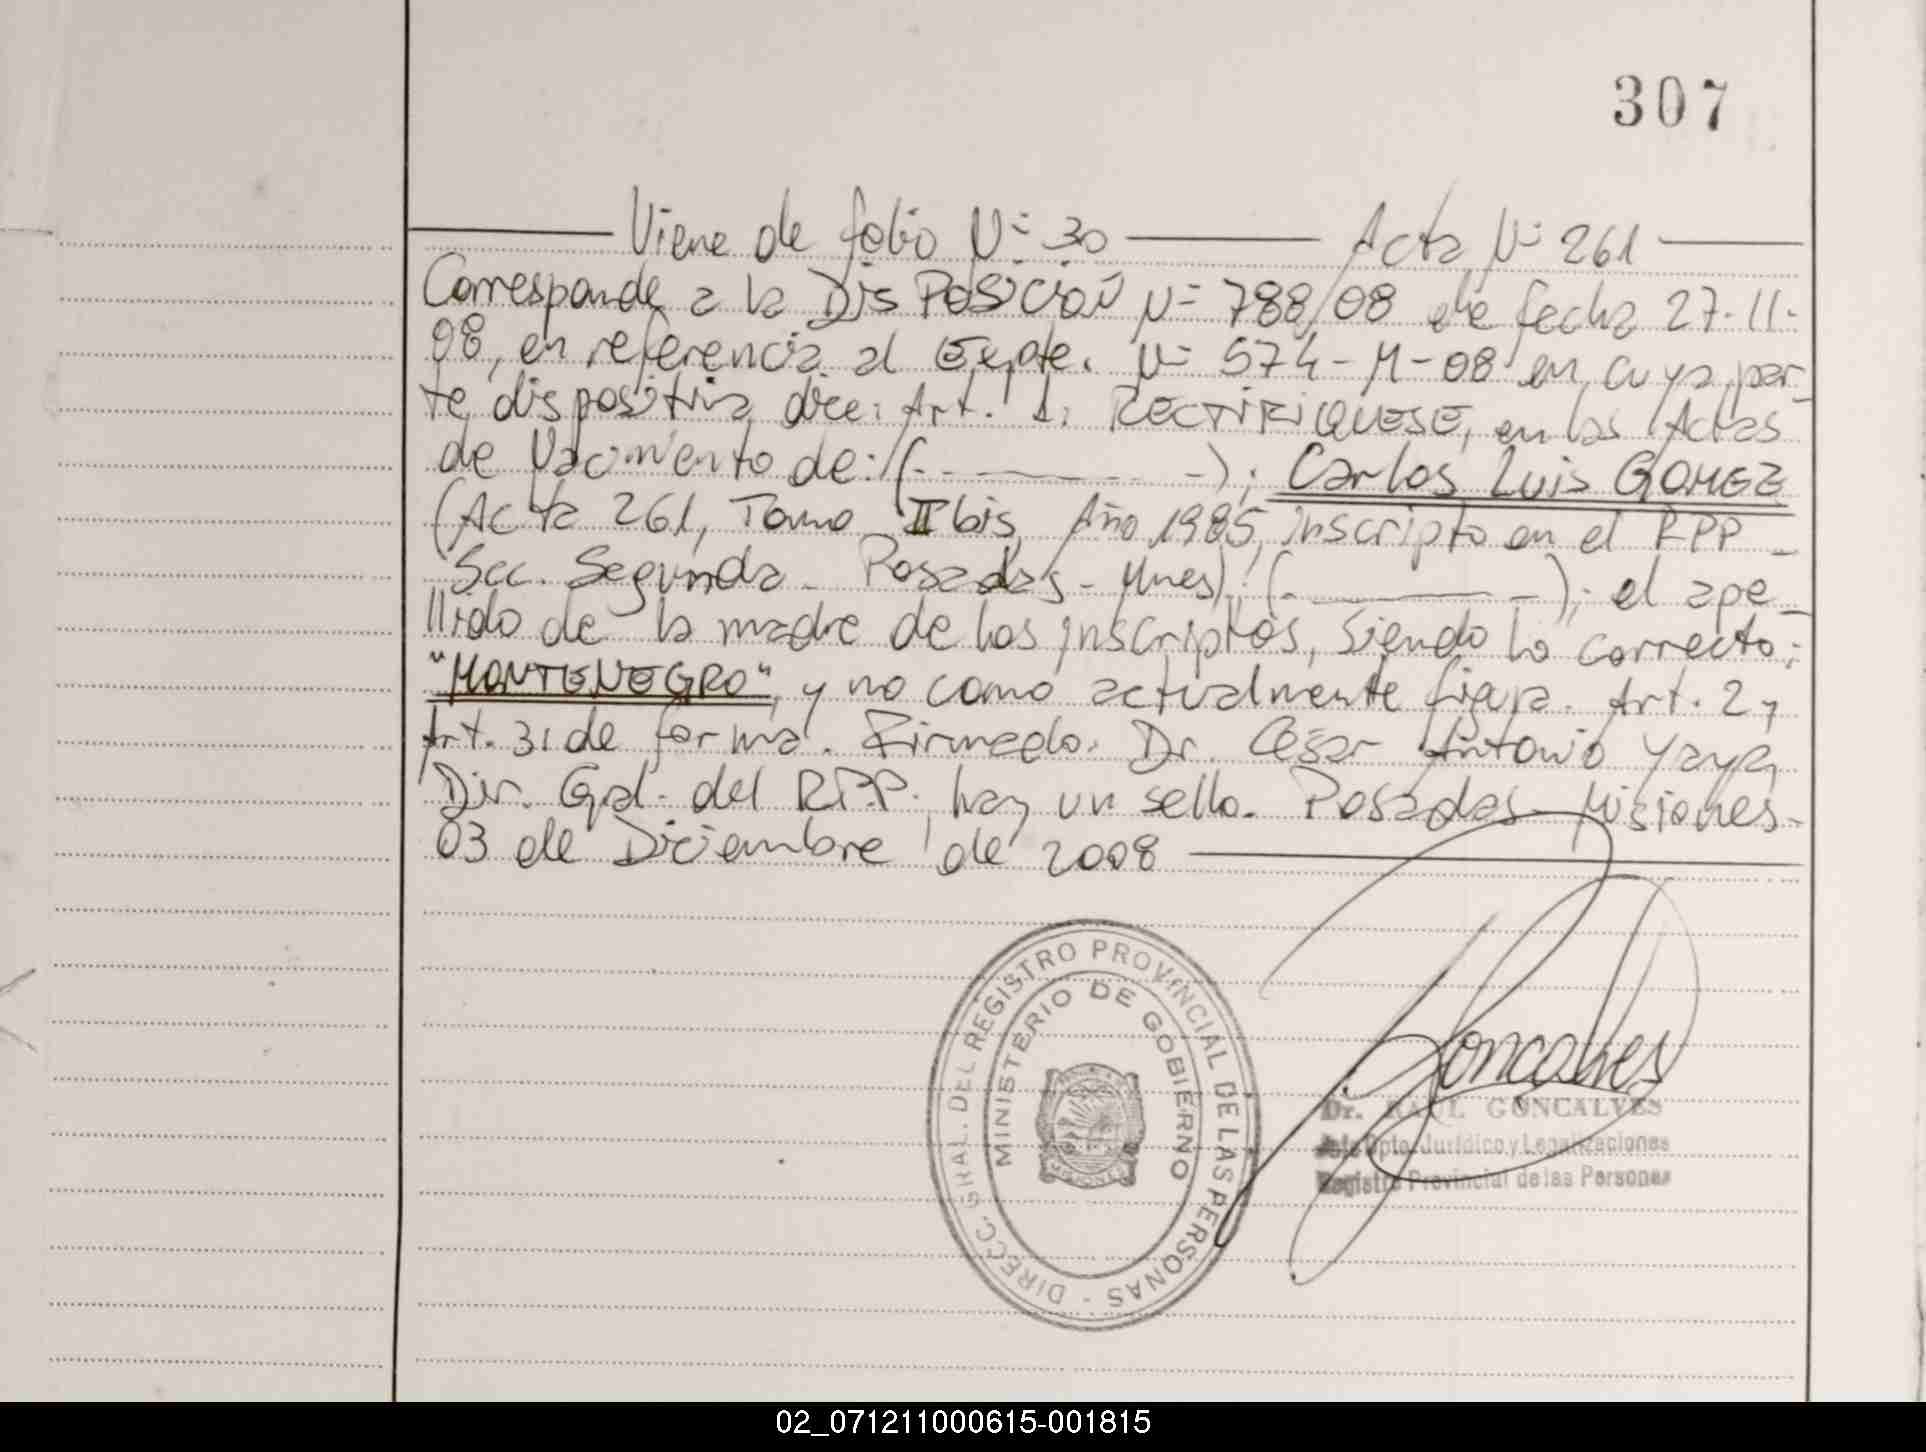 307
Viene de folio Nº 30 Acta Nº 261
Corresponde a la DISPOSICIÓN Nº 788/08 de fecha 27-11-
08, en referencia al Expte. Nº 574-M-08 en cuya par-
te dispositiva dice: Art. 1: RECTIFIQUESE, en las Actas
de Nacimiento de: (- - -); Carlos Luis GOMEZ
(Acta 261, Tomo II bis, Año 1985, inscripto en el RPP -
Sec. Segunda - Posadas - Mnes): (- - -); el ape-
llido de la madre de los inscriptos, siendo lo correcto:
"MONTENEGRO", y no como actualmente figura. Art. 2 y
Art. 3: de forma. Firmado. Dr. César Antonio Yaya
Dir. Gral. del R.P.P. hay un sello. Posadas - Misiones -
03 de Diciembre de 2008
DIRECC. GRAL. DEL REGISTRO PROVINCIAL DE LAS PERSONAS -
MINISTERIO DE GOBIERNO
MISIONES
Goncalves
Dr. RAUL GONCALVES
Jefe Dpto. Jurídico y Legalizaciones
Registro Provincial de las Personas
02_071211000615-001815